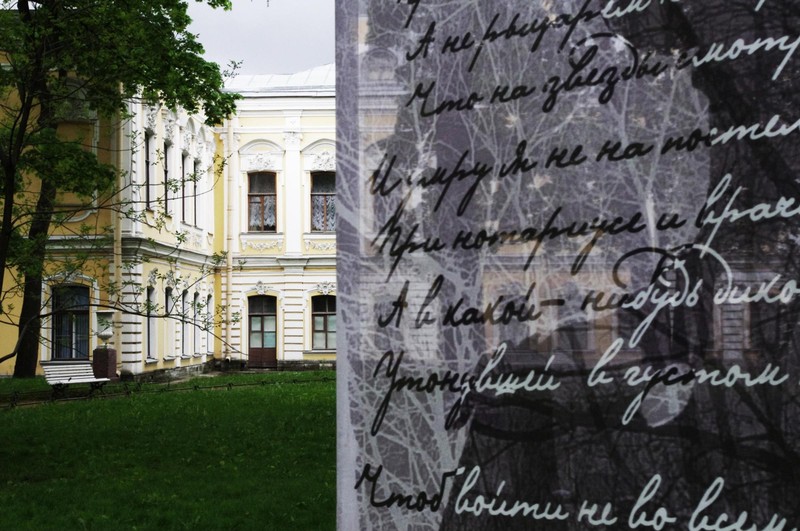 А не рыцарем
Что на звезды смотр
И умру я не на постел
При нотариусе и врач
А в какой-нибудь дико
Утонувшей в густом
Чтоб войти не во всем